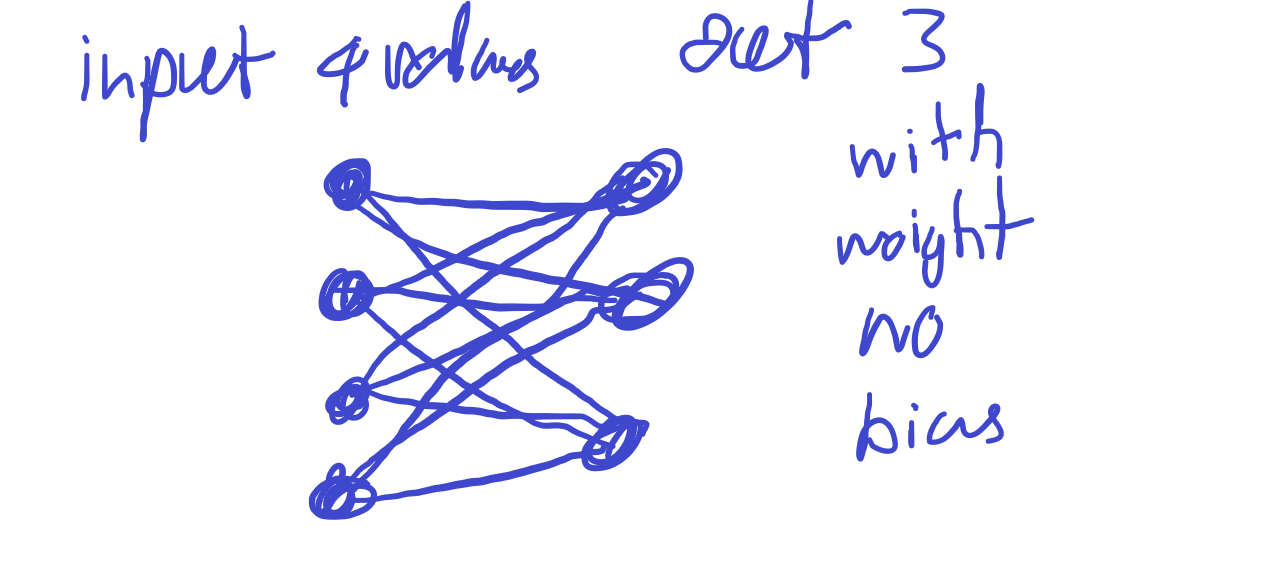 input 4 values out 3
with
weight
no
bias